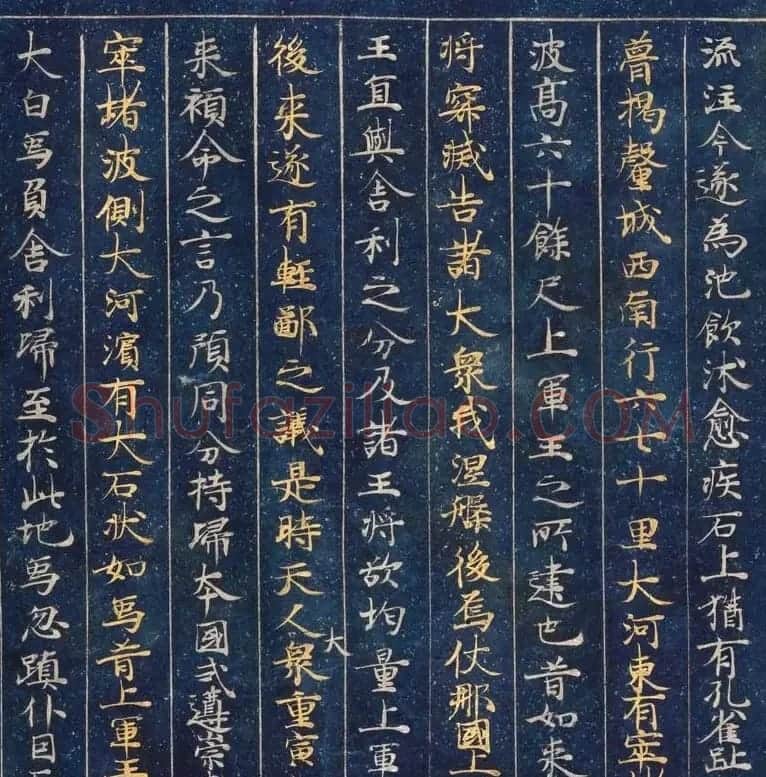 流汪今遂為池飲沐愈疾石上猶有孔雀趾
曹揭釐城西南行六七十里大河東有窣
波高六十餘尺上軍王之所建也昔如来
将寂滅告諸大衆我涅槃後烏仗那國上
王宜與舍利之分及諸王将欲均量上軍
後来遂有輕鄙之議是時天人大衆重宣
来顧命之言乃預同分持歸本國式遵崇
窣堵波側大河濱有大石状如馬首上軍王
大白馬負舍利歸至於此地馬忽蹎仆因
Shufaziliao.COM